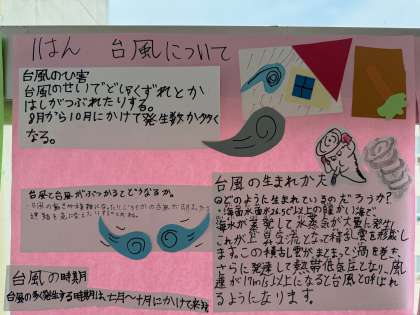 11はん 台風について
台風のひ害
台風のせいでどしゃくずれとか
はしがつぶれたりする。
8月から10月にかけて発生数が多く
なる。
台風と台風がぶつかるとどうなるか。
台風の生まれかた
どのように生まれているのだろうか?
・海面水温が26.5℃以上の暖かい海で
海水が蒸発して水蒸気が大量に発生し
これが上昇気流となって積乱雲を形成し
ます。この積乱雲がまとまって渦を巻き、
さらに発達して熱帯低気圧となり、風
速が17m/s以上になると台風と呼ばれ
るようになります。
台風の時期
台風の多く発生する時期は、七月〜十月にかけて